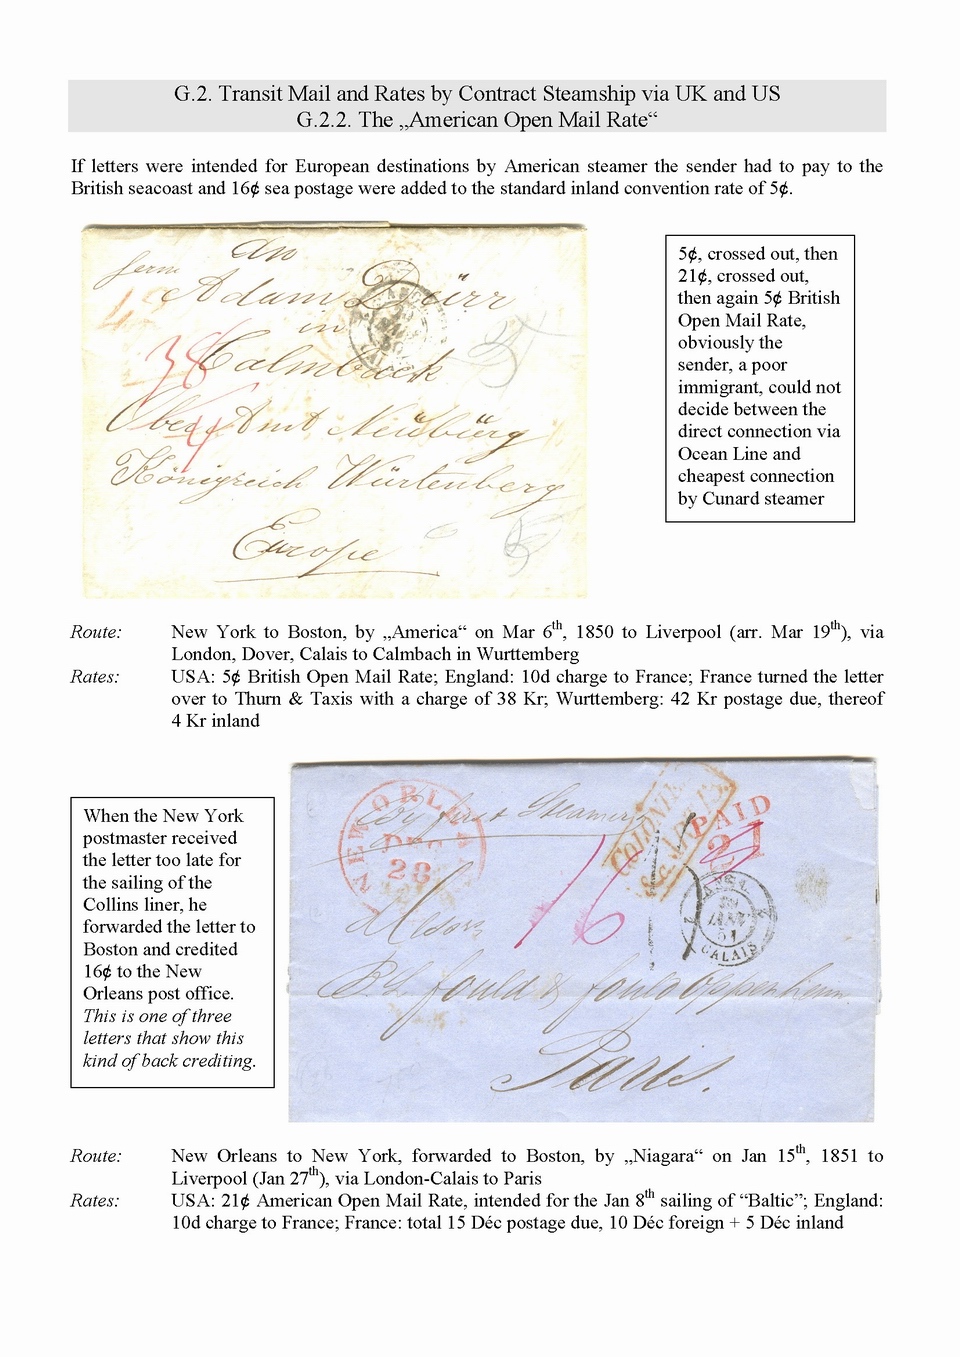 G.2. Transit Mail and Rates by Contract Steamship via UK and US
G.2.2. The „American Open Mail Rate“
If letters were intended for European destinations by American steamer the sender had to pay to the
British seacoast and 16¢ sea postage were added to the standard inland convention rate of 5¢.
An
Adam Dürr
in
Calmbach
Ober Amt Neübürg
Königreich Würtenberg
Europe
38
4
5¢, crossed out, then
21¢, crossed out,
then again 5¢ British
Open Mail Rate,
obviously the
sender, a poor
immigrant, could not
decide between the
direct connection via
Ocean Line and
cheapest connection
by Cunard steamer
Route: New York to Boston, by „America“ on Mar 6th, 1850 to Liverpool (arr. Mar 19th), via
London, Dover, Calais to Calmbach in Wurttemberg
Rates: USA: 5¢ British Open Mail Rate; England: 10d charge to France; France turned the letter
over to Thurn & Taxis with a charge of 38 Kr; Wurttemberg: 42 Kr postage due, thereof
4 Kr inland
When the New York
postmaster received
the letter too late for
the sailing of the
Collins liner, he
forwarded the letter to
Boston and credited
16¢ to the New
Orleans post office.
This is one of three
letters that show this
kind of back crediting.
NEW ORLEANS
DEC
28
By first Steamer
COLONIES
PAID
21
16
ANGL.
JANV
51
CALAIS
2
2
B. L. Fould & Fould Oppenheim
Paris.
Route: New Orleans to New York, forwarded to Boston, by „Niagara“ on Jan 15th, 1851 to
Liverpool (Jan 27th), via London-Calais to Paris
Rates: USA: 21¢ American Open Mail Rate, intended for the Jan 8th sailing of “Baltic”; England:
10d charge to France; France: total 15 Déc postage due, 10 Déc foreign + 5 Déc inland